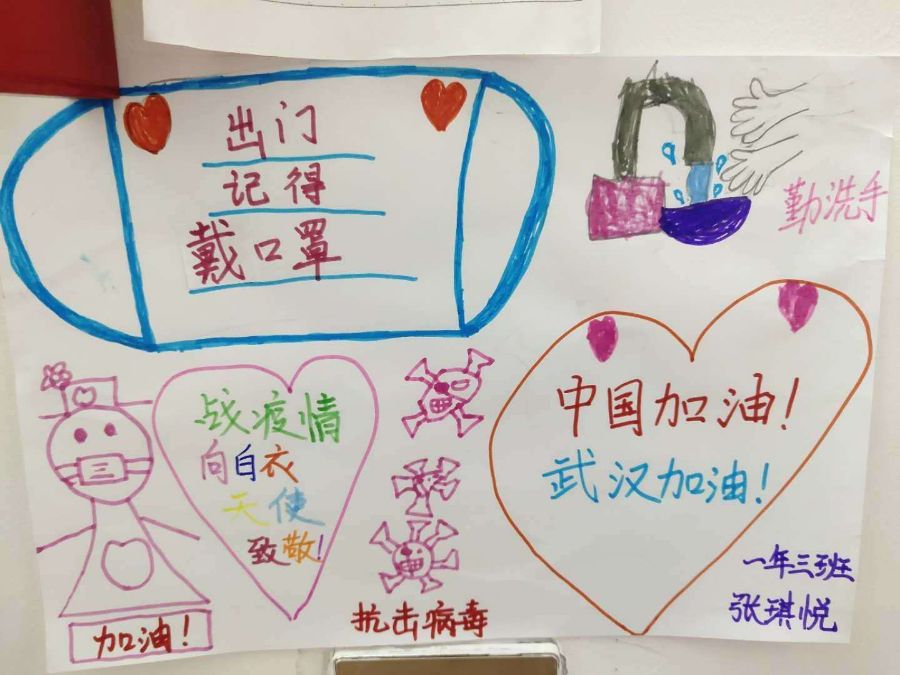 出门
记得
戴口罩
勤洗手
战疫情
向白衣
天使
致敬!
中国加油!
武汉加油!
加油!
抗击病毒
一年三班
张琪悦